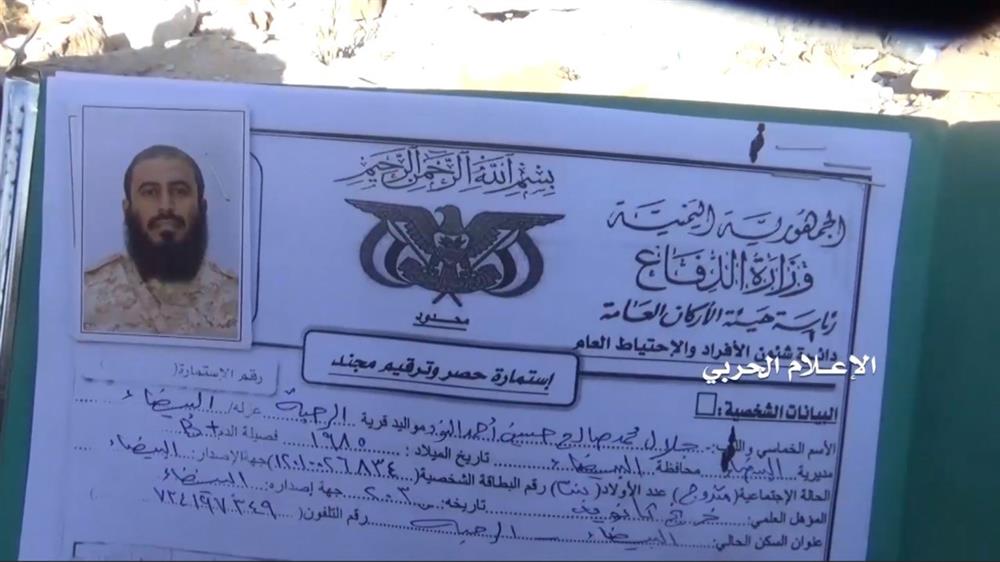 بسم الله الرحمن الرحيم
الجمهورية اليمنية
وزارة الدفاع
رئاسة هيئة الأركان العامة
دائرة شئون الأفراد والإحتياط العام
محدود
إستمارة حصر وترقيم مجند
رقم الإستمارة(
الإعلام الحربي
البيانات الشخصية:
الأسم الخماسي واللقب: جلال محمد صالح حسين أحمد مواليد قرية الرحبة عزلة/ البيضاء
مديرية البيضاء محافظة البيضاء تاريخ الميلاد: ١٩٨٥ فصيلة الدم
الحالة الإجتماعية( متزوج ) عدد الأولاد( ) رقم البطاقة الشخصية( ) جهة الإصدار: البيضاء
المؤهل العلمي: تاريخه: جهة إصداره: البيضاء
عنوان السكن الحالي: البيضاء الرحبة رقم التلفون(